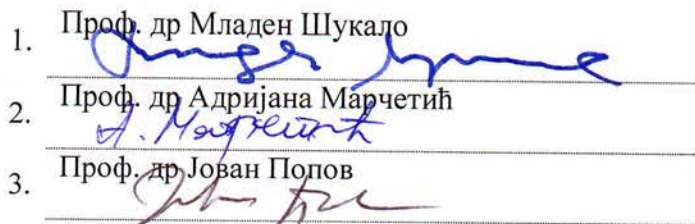 1. Проф. др Младен Шукало
2. Проф. др Адријана Марчетић
А. Марчетић
3. Проф. др Јован Попов